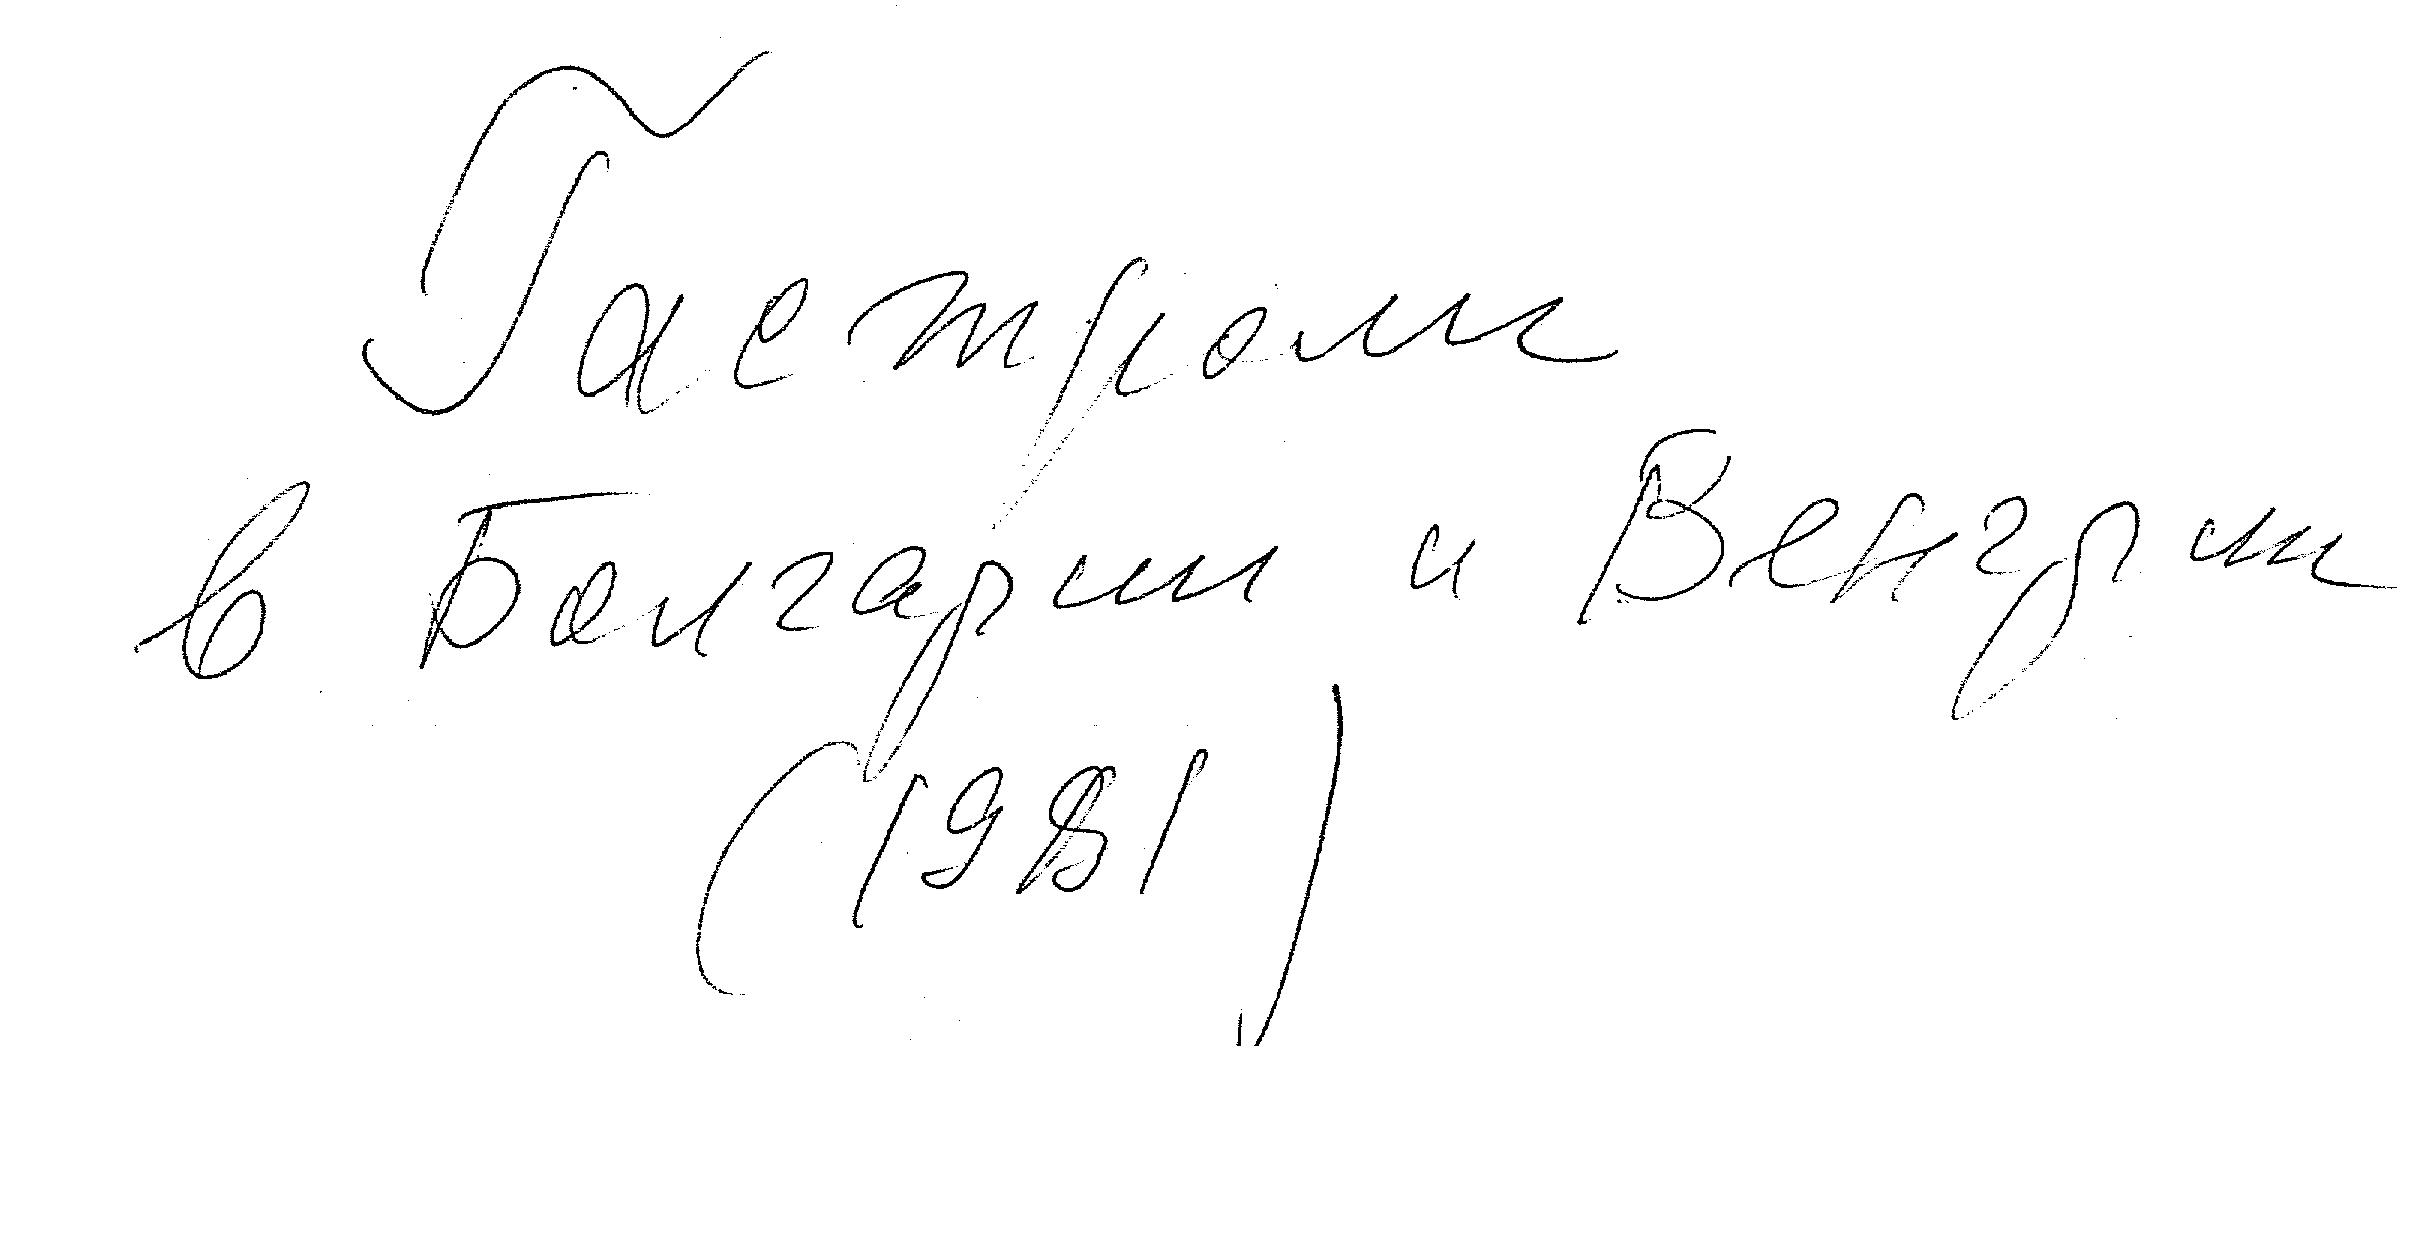 Гастроли
в Болгарии и Венгрии
(1981)